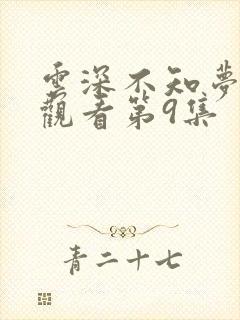 雲深不知夢
觀看第9集
青二十七